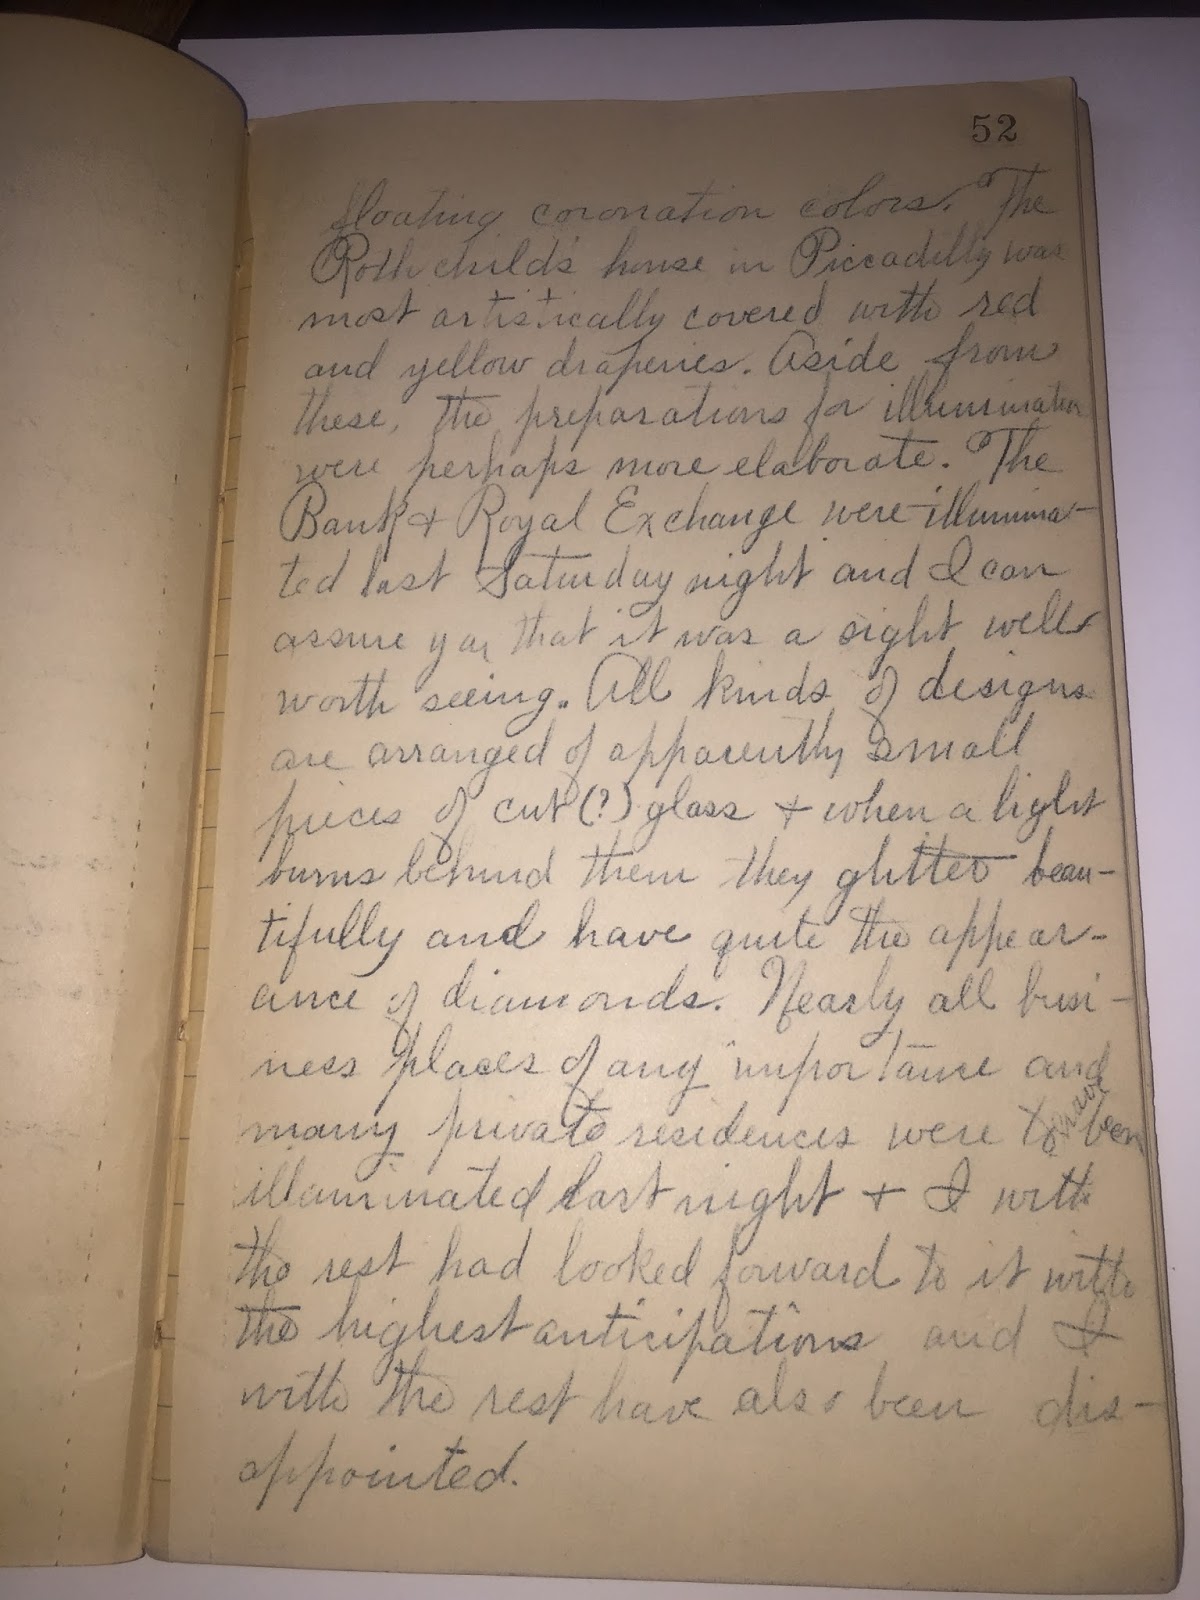 52
floating coronation colors. The
Rothchild's house in Piccadilly was
most artistically covered with red
and yellow draperies. Aside from
these, the preparations for illumination
were perhaps more elaborate. The
Bank & Royal Exchange were illumina-
ted last Saturday night and I can
assure you that it was a sight well
worth seeing. All kinds of designs
are arranged of apparently small
pieces of cut (?) glass & when a light
burns behind them they glitter beau-
tifully and have quite the appear-
ance of diamonds. Nearly all busi-
ness places of any importance and
many private residences were to have been
illuminated last night & I with
the rest had looked forward to it with
the highest anticipations and I
with the rest have also been dis-
appointed.